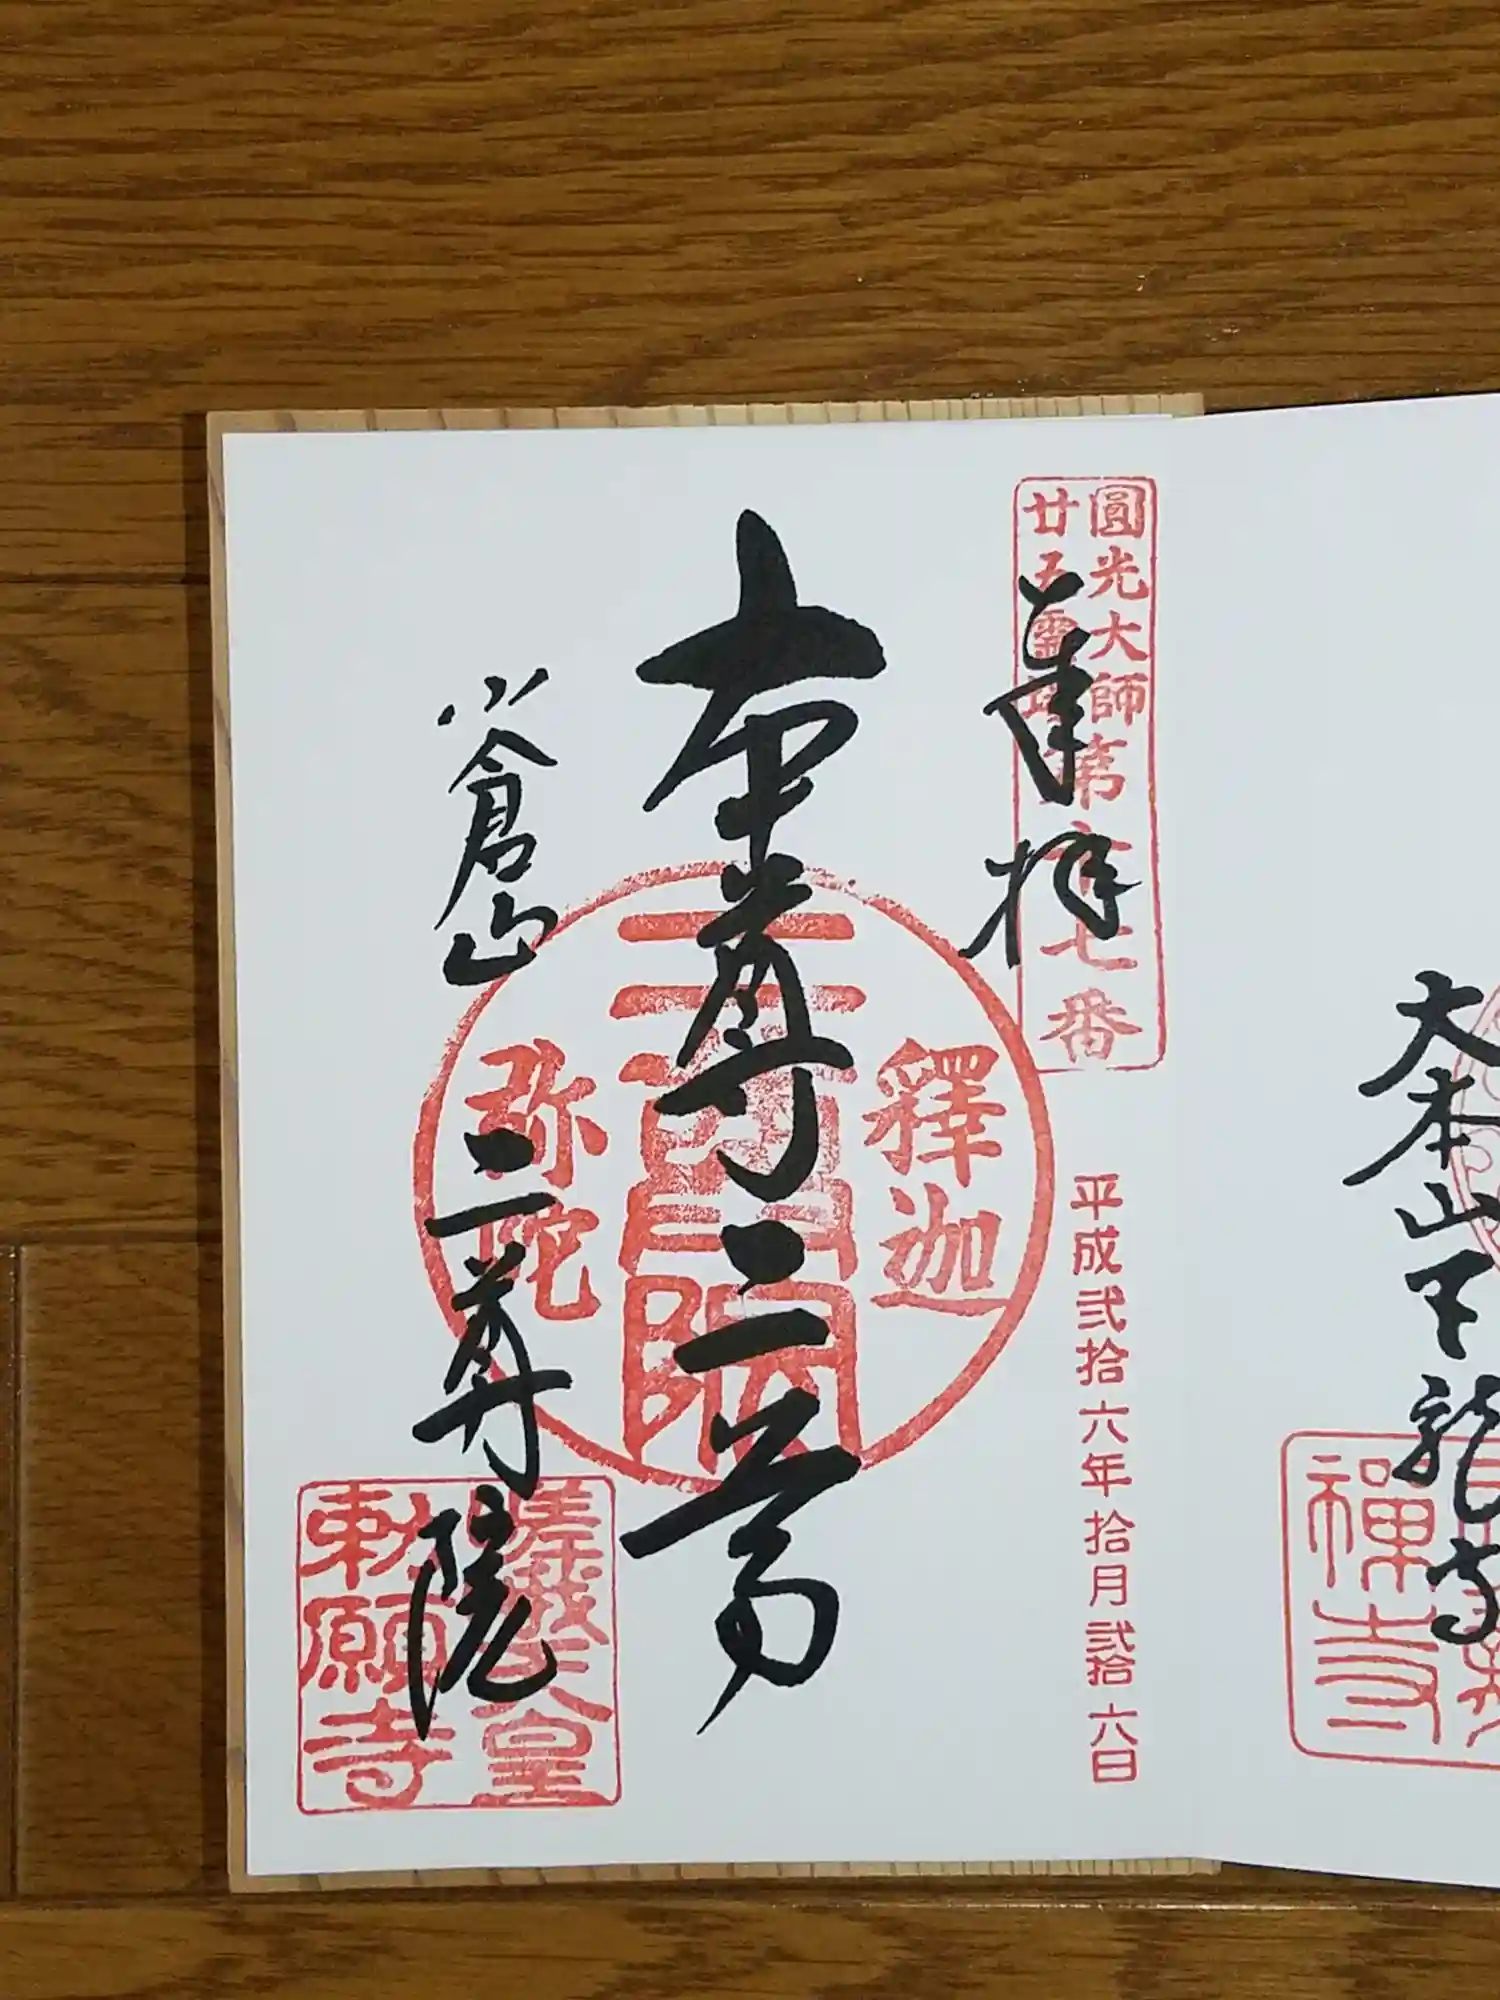 大本山天龍寺
禅寺
圓光大師
廿五霊場第十七番
奉拝
平成弐拾六年拾月弐拾六日
本尊二尊
釋迦
二尊院
弥陀
小倉山
二尊院
嵯峨天皇
勅願寺